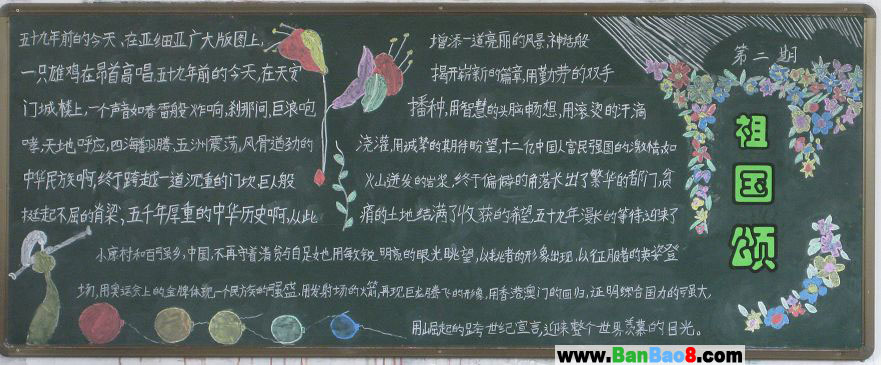 第二期
祖国颂
五十九年前的今天、在亚细亚广大版图上,
一只雄鸡在昂首高唱.五十九年前的今天,在天安
门城楼上,一个声音如春雷般炸响,刹那间,巨浪咆
哮,天地呼应,四海翻腾.五洲震荡,风骨遒劲的
中华民族啊,终于跨越一道沉重的门坎.巨人般
挺起不屈的脊梁,五千年厚重的中华历史啊,从此
增添一道亮丽的风景.神话般
揭开崭新的篇章,用勤劳的双手
播种,用智慧的头脑畅想,用滚烫的汗滴
浇灌,用诚挚的期待盼望,十二亿中国人富民强国的激情,如
火山迸发的岩浆,终于偏僻的角落长出了繁华的都门,贫
瘠的土地结满了收获的希望.五十九年漫长的等待迎来了
小康村和百强乡,中国,不再守着清贫与自足.她用敏锐明亮的眼光眺望,以挑者的形象出现,以征服者的英姿登
场,用奥运会上的金牌体现一个民族的强盛.用发射场的火箭,再现巨龙腾飞的形像,用香港澳门的回归,证明综合国力的强大,
用崛起的跨世纪宣言,迎来整个世界羡慕的目光。
www.BanBao8.com